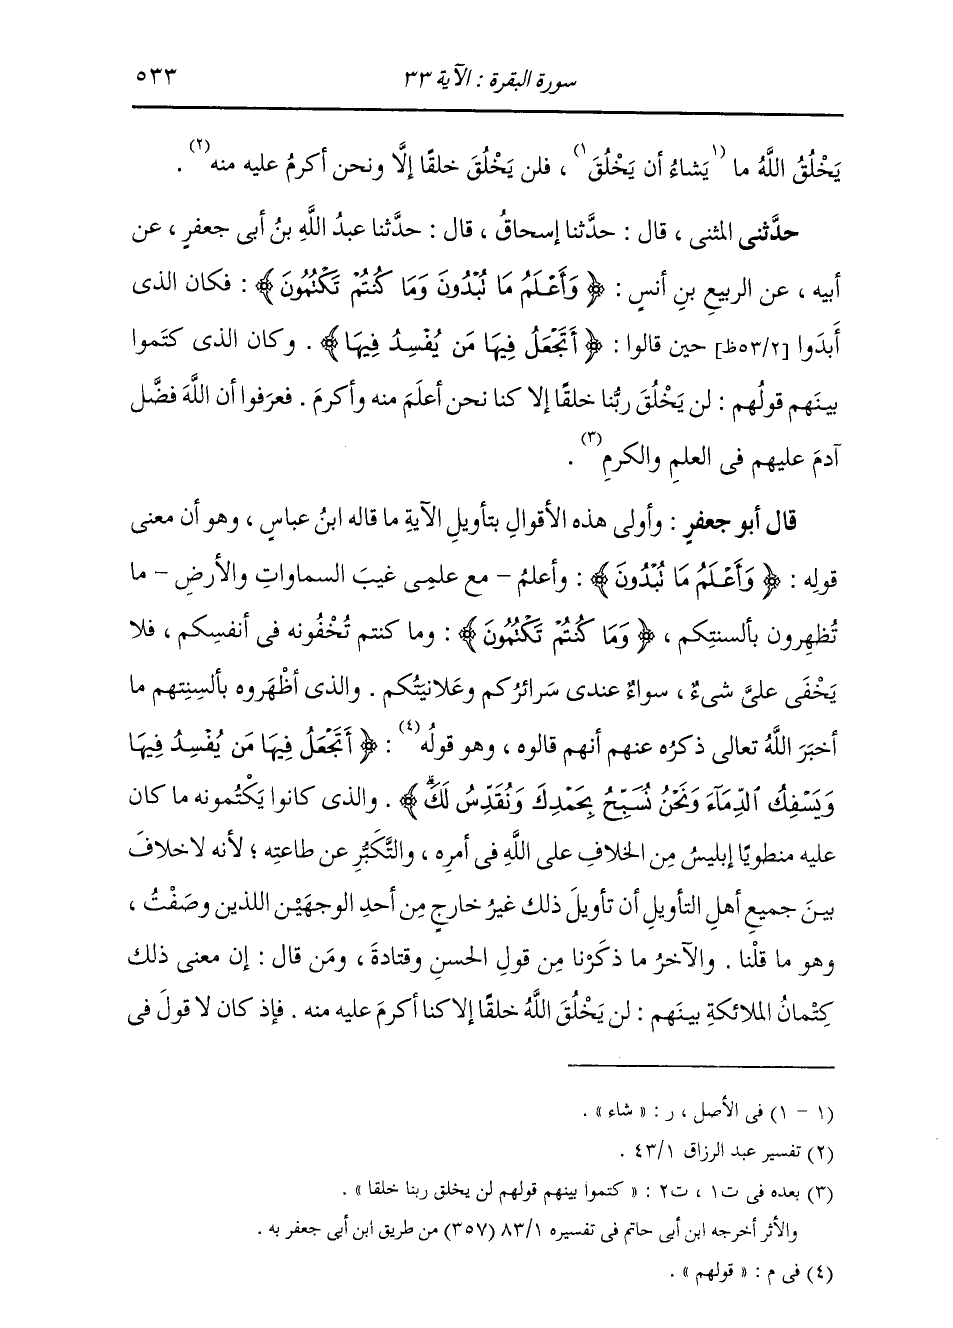 سورة البقرة : الآية ٣٣
٥٣٣
يَخْلُقُ اللَّهُ ما (١يَشاءُ أن يَخْلُقَ١) ، فلن يَخْلُقَ خلقًا إلَّا ونحن أكرمُ عليه منه(٢) .
حدَّثنى المثنى ، قال : حدَّثنا إسحاقُ ، قال : حدَّثنا عبدُ اللَّهِ بنُ أبى جعفرٍ ، عن
أبيه ، عن الربيعِ بنِ أنسٍ : ﴿ وَأَعْلَمُ مَا نُبْدُونَ وَمَا كُنتُمْ تَكْتُمُونَ ﴾ : فكان الذى
أَبدَوا [٥٣/٢ظ] حين قالوا : ﴿ أَتَجْعَلُ فِيهَا مَن يُفْسِدُ فِيهَا ﴾ . وكان الذى كتَموا
بينَهم قولُهم : لن يَخْلُقَ ربُّنا خلقًا إلا كنا نحن أعلَمَ منه وأكرمَ . فعرَفوا أن اللَّهَ فضَّل
آدمَ عليهم فى العلمِ والكرمِ(٣) .
قال أبو جعفرٍ : وأولى هذه الأقوالِ بتأويلِ الآيةِ ما قاله ابنُ عباسٍ ، وهو أن معنى
قولِه : ﴿ وَأَعْلَمُ مَا نُبْدُونَ ﴾ : وأعلمُ - مع علمِى غيبَ السماواتِ والأرضِ - ما
تُظهِرون بألسنتِكم ، ﴿ وَمَا كُنتُمْ تَكْتُمُونَ ﴾ : وما كنتم تُخْفُونه فى أنفسِكم ، فلا
يَخْفَى علىَّ شىءٌ ، سواءٌ عندى سَرائرُكم وعَلانيَتُكم . والذى أظْهَروه بألسِنتِهم ما
أخبَرَ اللَّهُ تعالى ذكرُه عنهم أنهم قالوه ، وهو قولُه(٤) : ﴿ أَتَجْعَلُ فِيهَا مَن يُفْسِدُ فِيهَا
وَيَسْفِكُ ٱلدِّمَآءَ وَنَحْنُ نُسَبِّحُ بِحَمْدِكَ وَنُقَدِّسُ لَكَۖ ﴾ . والذى كانوا يَكْتُمونه ما كان
عليه منطويًا إبليسُ مِن الخلافِ على اللَّهِ فى أمرِه ، والتَّكَبُّرِ عن طاعتِه ؛ لأنه لا خلافَ
بينَ جميعِ أهلِ التأويلِ أن تأويلَ ذلك غيرُ خارجٍ مِن أحدِ الوجهَيْن اللذين وصَفْتُ ،
وهو ما قلْنا . والآخرُ ما ذكَرْنا مِن قولِ الحسنِ وقتادةَ ، ومَن قال : إن معنى ذلك
كِتْمانُ الملائكةِ بينَهم : لن يَخْلُقَ اللَّهُ خلقًا إلا كنا أكرمَ عليه منه . فإذ كان لا قولَ فى
(١ - ١) فى الأصل ، ر : « شاء » .
(٢) تفسير عبد الرزاق ٤٣/١ .
(٣) بعده فى ت١ ، ت٢ : « كتموا بينهم قولهم لن يخلق ربنا خلقا » .
والأثر أخرجه ابن أبى حاتم فى تفسيره ٨٣/١ (٣٥٧) من طريق ابن أبى جعفر به .
(٤) فى م : « قولهم » .